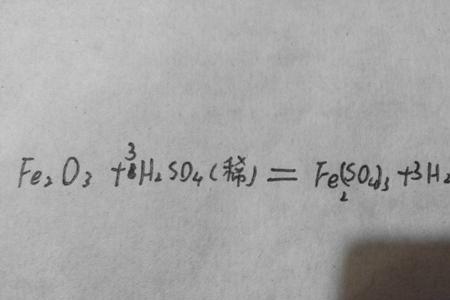 Fe₂O₃ + 3H₂SO₄(稀) = Fe₂(SO₄)₃ + 3H₂